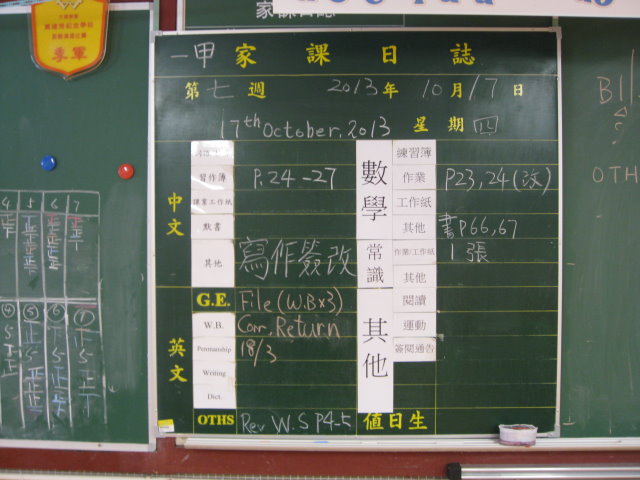 家課日誌
季軍
一甲 家課日誌
第七週 2013年10月17日
17th October, 2013 星期四
中文
習作簿 P.24-27
課業工作紙
默書
其他 寫作簽改
數學
練習簿
作業 P23,24(改)
工作紙
其他 書P66,67
常識
作業/工作紙 1張
其他
英文
G.E. File (W.Bx3)
W.B. Corr, Return
Penmanship 18/3
Writing
Dict.
OTHS Rev W.S P4-5
其他
閱讀
運動
簽閱通告
值日生
4 5 6 7
④ ⑤ ⑥ ⑦
OTH